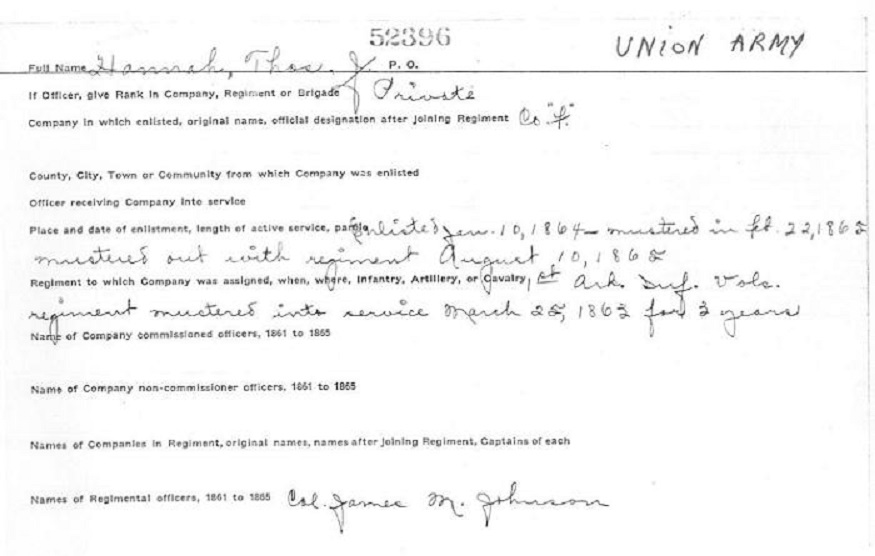 52396
UNION ARMY
Full Name Hannah, Thos. J. P. O.
If Officer, give Rank in Company, Regiment or Brigade Private
Company in which enlisted, original name, official designation after joining Regiment Co "F."
County, City, Town or Community from which Company was enlisted
Officer receiving Company into service
Place and date of enlistment, length of active service, parole Enlisted Jan. 10, 1864 — mustered in 22, 1865
mustered out with regiment August 10, 1865
Regiment to which Company was assigned, when, where, Infantry, Artillery, or Cavalry, Ark. Inf. Vols.
regiment mustered into service March 25, 1863 for 3 years
Name of Company commissioned officers, 1861 to 1865
Name of Company non-commissioner officers, 1861 to 1865
Names of Companies in Regiment, original names, names after joining Regiment, Captains of each
Names of Regimental officers, 1861 to 1865 Col. James M. Johnson